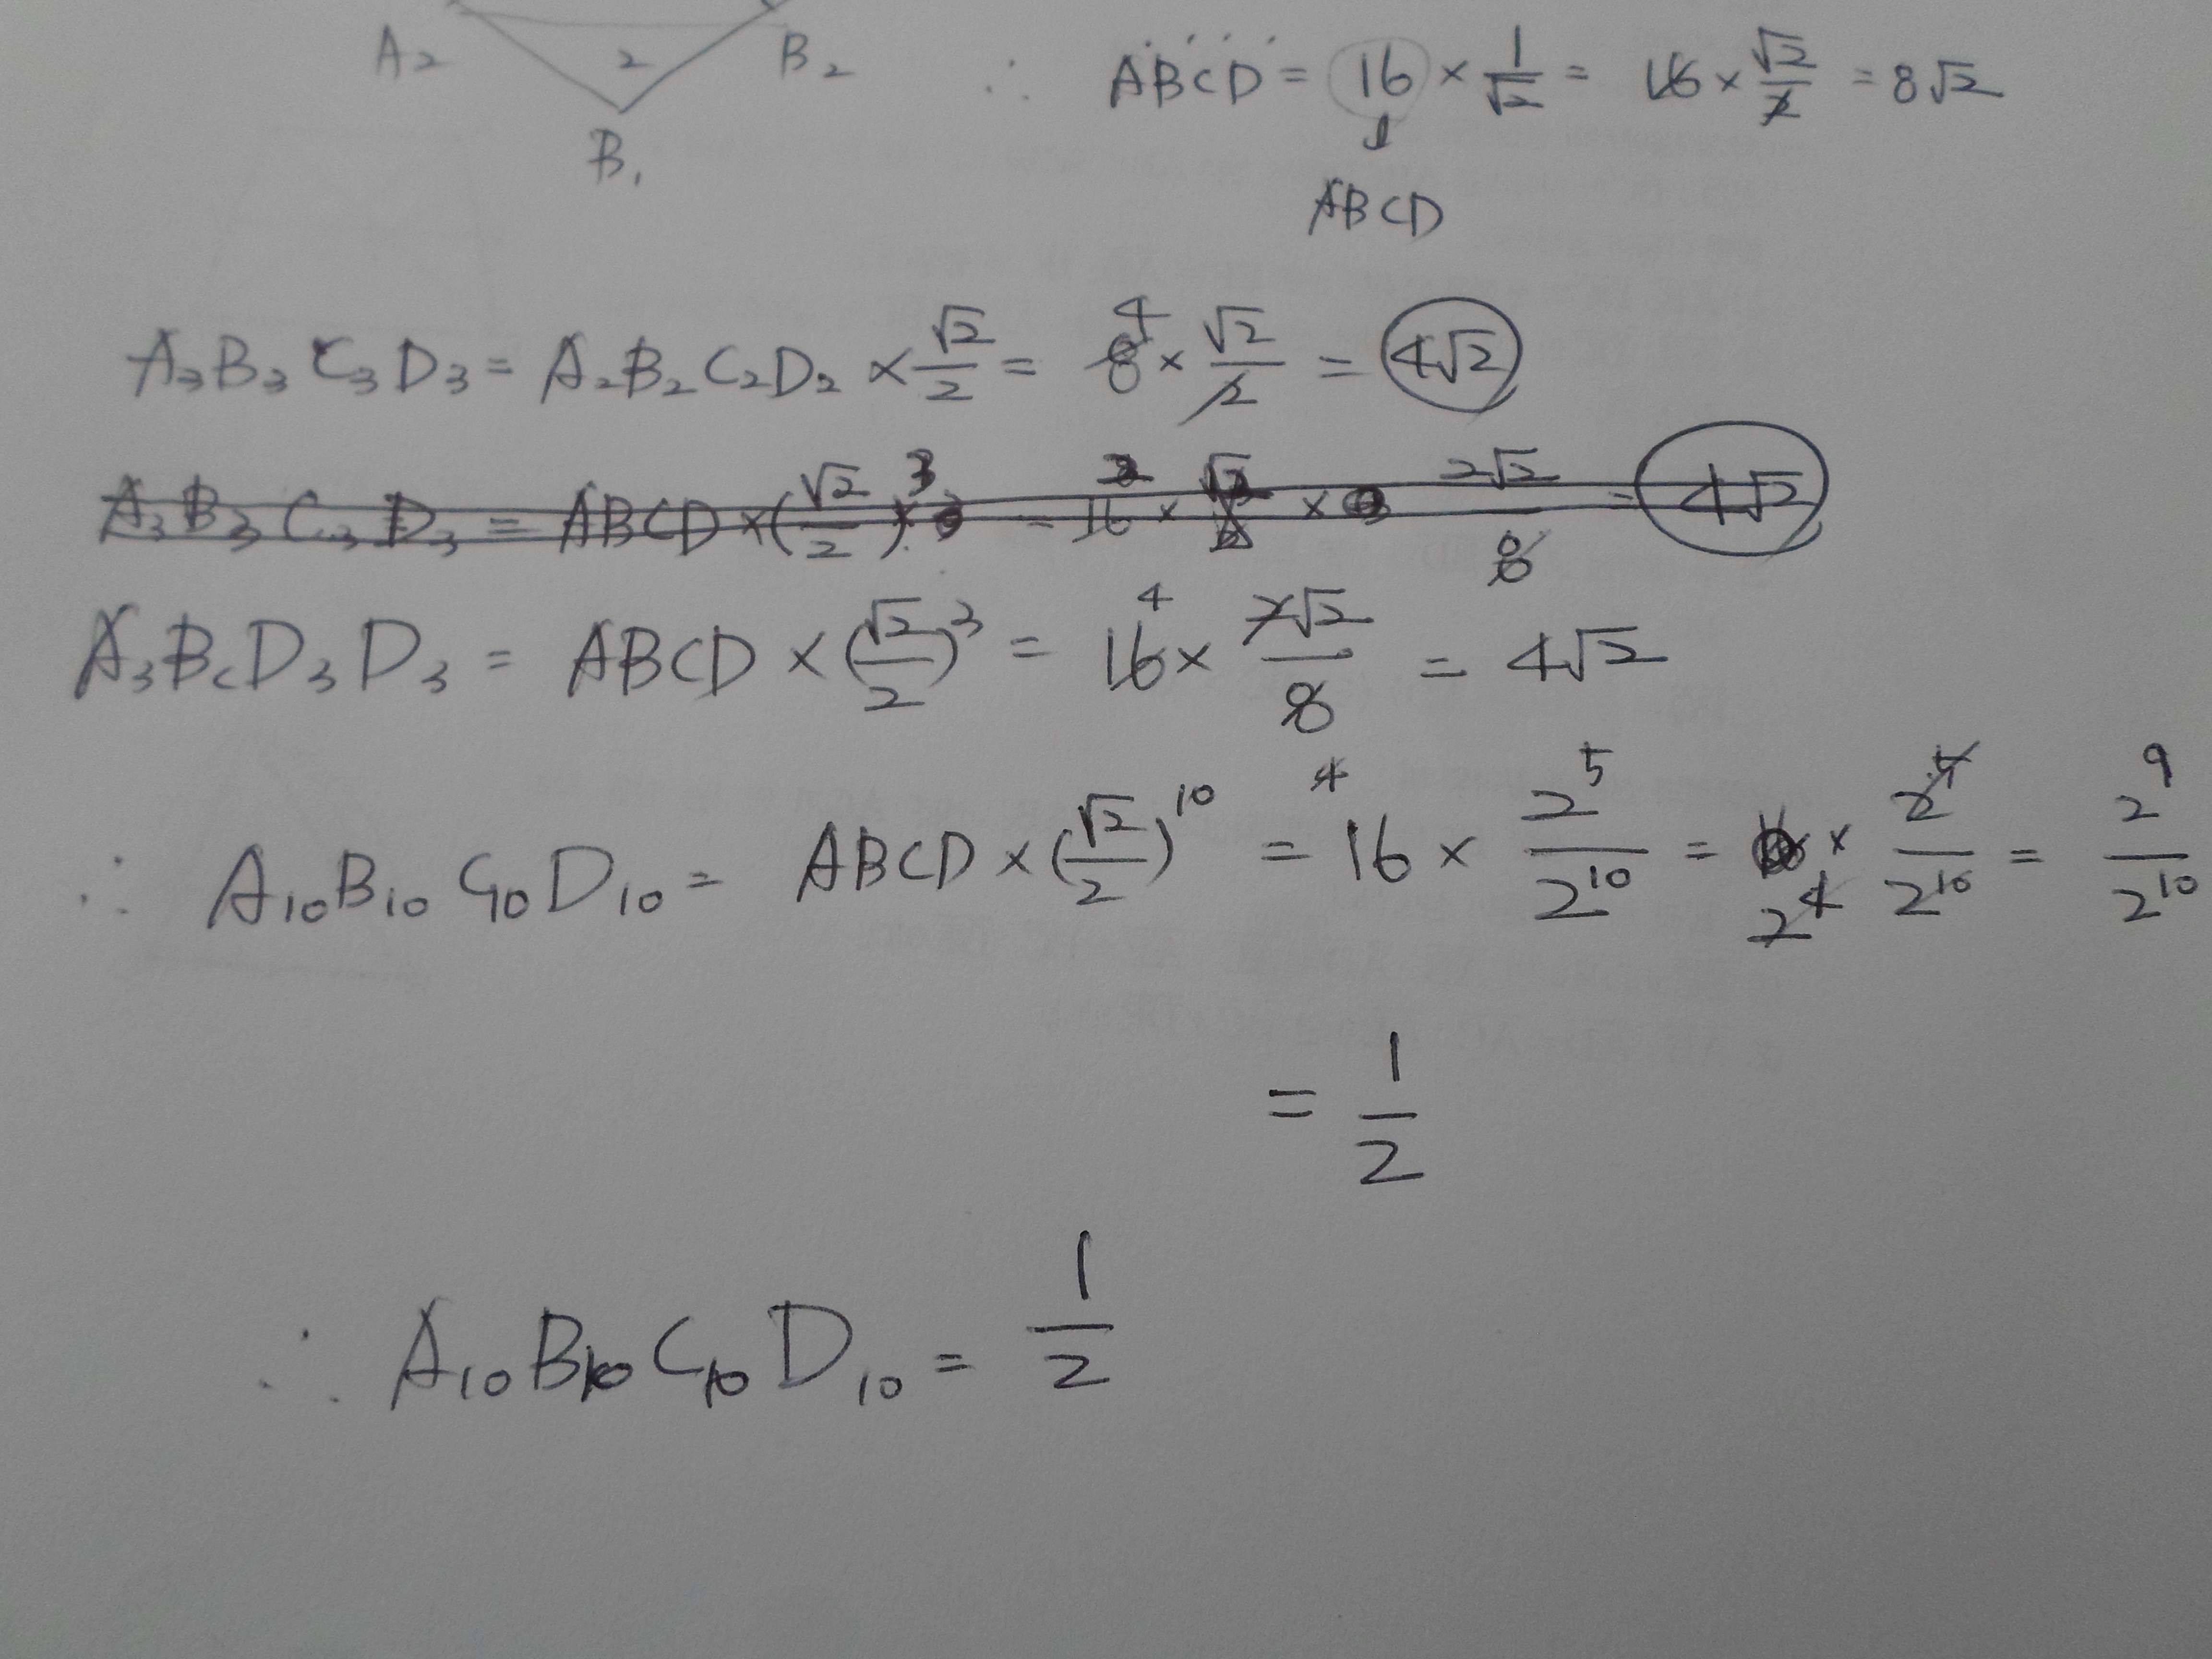 A₂ 2 B₂
B₁
∴ ABCD = 16 × 1/√2 = 16 × √2/2 = 8√2
↓
ABCD
A₃B₃C₃D₃ = A₂B₂C₂D₂ × √2/2 = 8 4 × √2/2 = 4√2
A₃B₃C₃D₃ = ABCD × (√2/2)³ = 16 × × 2√2/8 = 4√2
A₃BcD₃D₃ = ABCD × (√2/2)³ = 16 4 × 2√2/8 = 4√2
∴ A₁₀B₁₀C₁₀D₁₀ = ABCD × (√2/2)¹⁰ = 4 16 × 2⁵/2¹⁰ = 2⁴ × 2⁵/2¹⁰ = 2⁹/2¹⁰
= 1/2
∴ A₁₀B₁₀C₁₀D₁₀ = 1/2